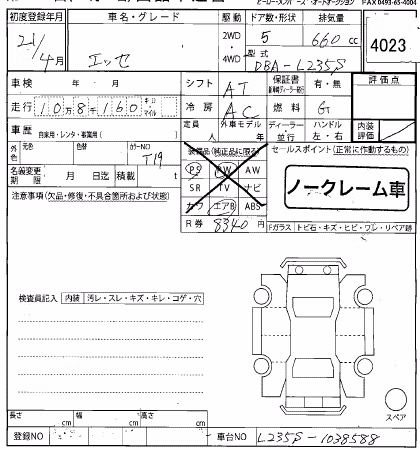 FAX 0493-65-4004
初度登録年月 車名・グレード 駆動 ドア数・形状 排気量
21/4月 エッセ 2WD 4WD 5 660cc
型式 DBA-L235S
4023
車検 年 月 シフト AT 保証書 有・無 評価点
走行 10万8千160 キロ マイル 冷房 AC 燃料 G
定員 人 外車モデル 年 ディーラー 並行 ハンドル 左・右 内装評価
車歴 自家用・レンタ・事業用( )
外色 元色 色替 カラーNO T19
装備品(純正品に限る) セールスポイント(正常に作動するもの)
名義変更期限 月 日迄 積載 t
PS PW AW
SR TV ナビ
カワ エアB ABS
ノークレーム車
注意事項(欠品・修復・不具合箇所および状態)
R券 8340 円
Fガラス トビ石・キズ・ヒビ・ワレ・リペア跡
検査員記入 内装 汚レ・スレ・キズ・キレ・コゲ・穴
スペア
長さ cm 幅 cm 高さ cm
登録NO 車台NO L235S-1038588